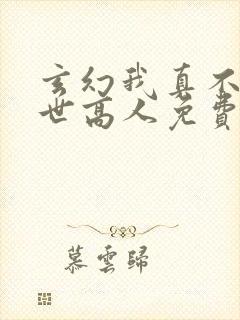 玄幻我真不
世高人免費
慕雲歸